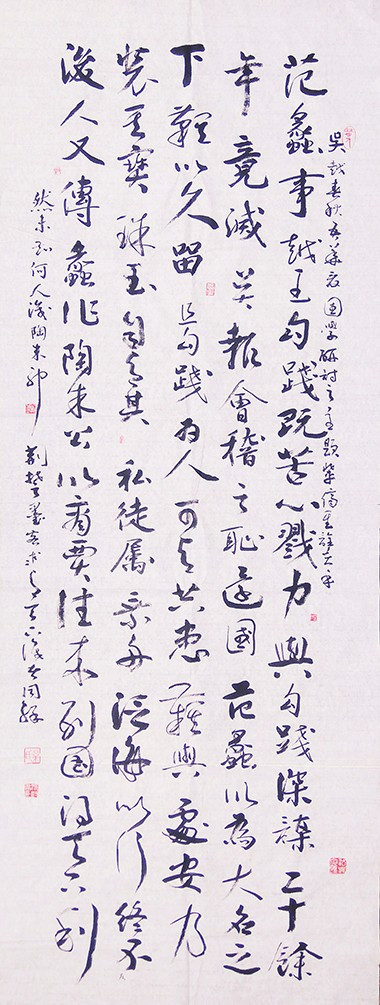 吳越春秋
國學研討之主題
范蠡事越王勾踐既苦心戮力與勾踐深謀二十餘
年竟滅吳報會稽之恥返國范蠡以為大名之
下難以久留且勾踐為人可與共患難與處安乃
裝其寶珠玉自與其私徒屬乘舟泛海以行終不
後人又傳蠡作陶朱公以商賈往來列國天下利
然未知何人後陶朱耶
荆楚墨客